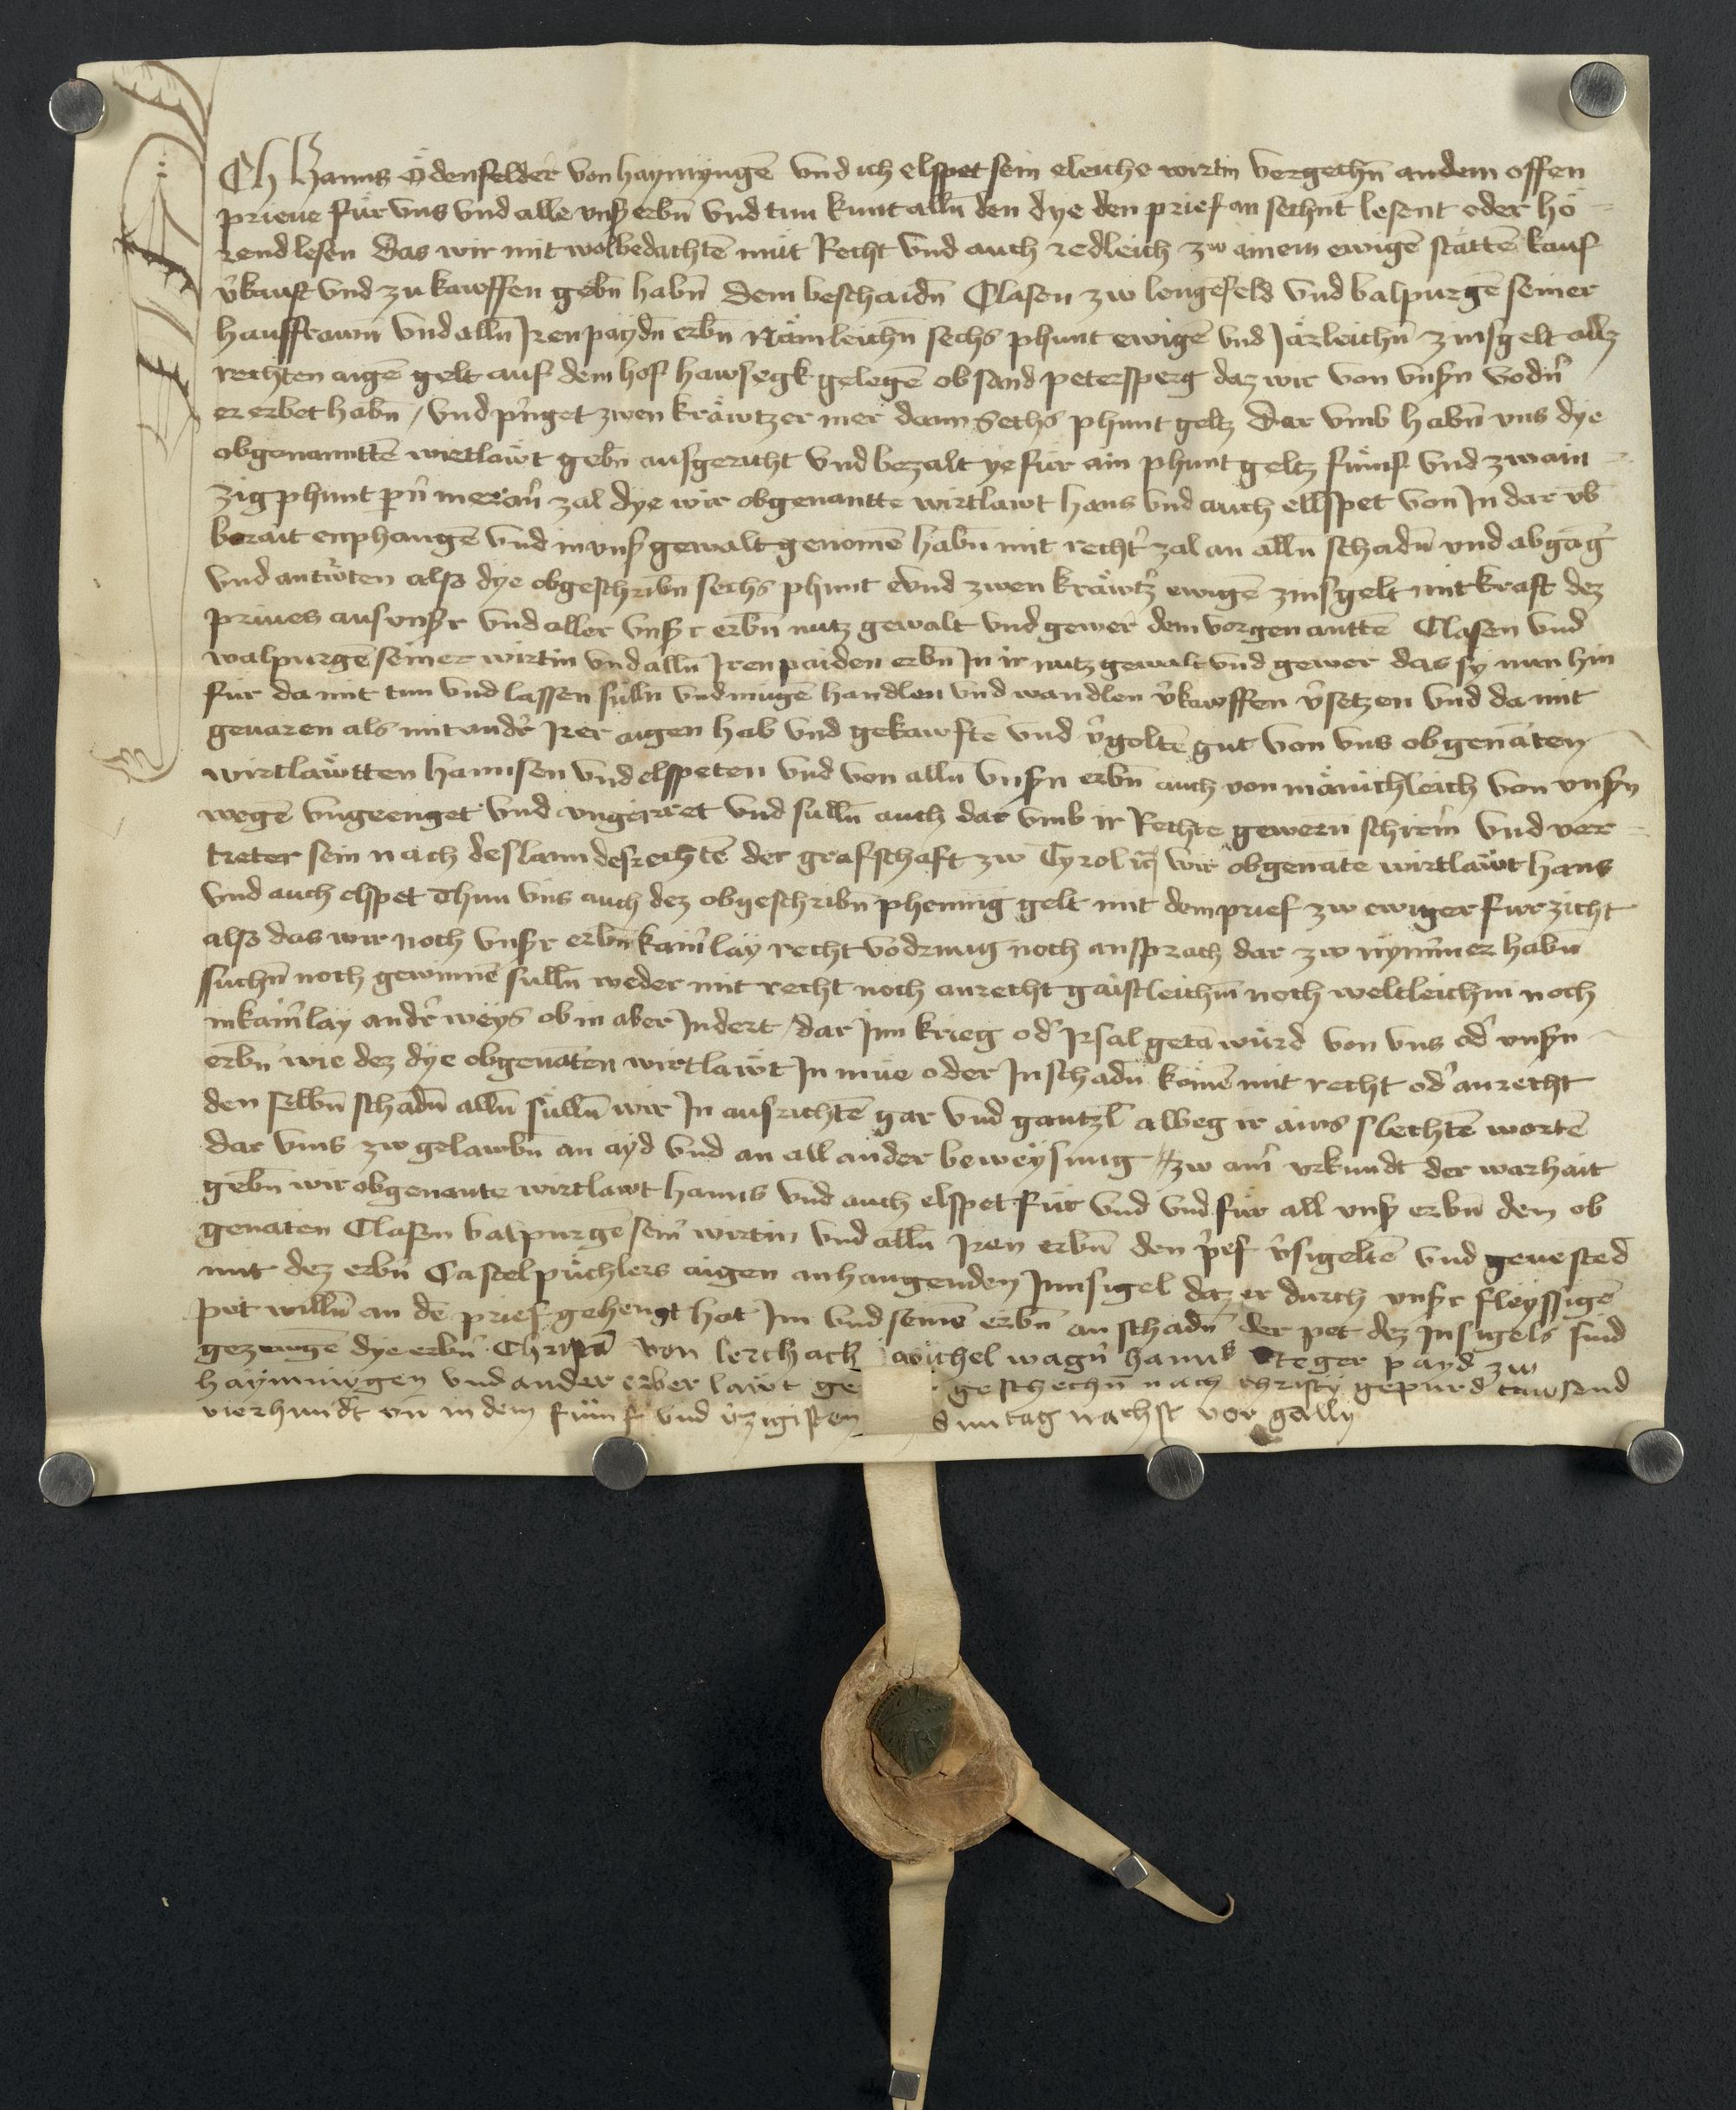 ICh Hanns ödenfelder von haymyngē vnd ich elspet sein eleiche wirtin vergechn̄ an dem offen
prieue für vns vnd alle vnsʒ erbn̄ vnd tun kunt alln̄ den dye den prief an sechnt lesent oder hö-
rend lesen Das wir mit wolbedachtē müt Recht vnd auch redleich zw ainem ewigē stättē kauf
v̉kauft vnd zu kawffen gebn̄ habn̄ dem beschaidn̄ Clasen zw lengēfeld vnd balpurgē seiner
hausfrawn̄ vnd alln̄ Iren paydn̄ erbn̄ Nämleichn̄ sechs phunt ewigē vnd Järleichn̄ zinsgelt allʒ
rechten aigē gelt auf dem hof hawsegk gelegē ob sand petersperg daz wir von vnsʒn vodn̉
er erbet habn̄ / vnd p̉nget zwen kräwtzer mer dann Sechs phunt geltz Dar vmb habn̄ vns dye
obgenanttē wirtläwt gebn̄ ausgericht vnd bezalt ye für ain phunt geltz fünf vnd zwain-
zig phunt pn̄ meran̉ zal dye wir obgenantte wirtlawt hans vnd auch ellspet von In dar vb̄
berait enphangē vnd in vnsʒ gewalt genomē habn̄ mit recht̉ zal an alln̄ schadn̄ vnd abgāg̉
vnd antẘten alsʒ dye obgeschribn̄ sechs phunt vnd zwen kräwtz̉ ewigē zinsgelt mit kraft dez
prieues aus vnsʒr vnd aller vnsʒr erbn̄ nutz gewalt vnd gewer dem vorgenanttē Clasen vnd
walpurgē seiner wirtin vnd alln̄ Iren paiden erbn̄ In ir nutz gewalt vnd gewer das sy nun hin
für da mit tun vnd lassen sülln̄ vnd mügē handlen vnd wandlen v̉kawffen v̉setzen vnd da mit
geuaren als mit and̉r Irer aigen hab vnd gekawftē vnd v̉goltē gut von vns obgenāten
wirtläwtten hannsen vnd elspeten vnd von alln̄ vnsʒn erbn̄ auch von mänichleich von vnsʒn
wegē vngeenget vnd vngeirret vnd sulln̄ auch dar vmb ir Rechte gewern schirm̄ vnd ver-
treter sein nach des lanndesrechtē der grafschaft zw Tyrol wir obgenāte wirtläwt hans
vnd auch elspet Thun vns auch dez obgeschribn̄ phennig gelt mit dem prief zw ewiger furzicht
alsʒ das wir noch vnsʒr erbn̄ kain̉lay recht vodrung noch ansprach dar zw nym̄mer habn̄
suchn̄ noch gewinnē sulln̄ weder mit recht noch anrecht gaistleichm̄ noch weltleichm noch
in kain̉lay and̉r weys ob in aber Indert / dar Inn krieg od̉ Irsal getā würd von vns od̉ vnsʒn
erbn̄ wie dez dye obgenāten wirtläwt In müe oder In schadn̄ kömē mit recht od̉ anrecht
den selbn̄ schadn̄ alln̄ sülln̄ wir In ausrichtē gar vnd gantzl̄ alweg ir ains slechtē wortē
dar vms zw gelawbn̄ an ayd vnd an all ander beweysung zw ain̉ vrkundt der warhait
gebn̄ wir obgenante wirtlawt hanns vnd auch elspet für vnd vnd für all vnsʒ erbn̄ den ob
genāten Clasen balpurgē sein̉ wirtin vnd alln̄ Iren erbn̄ den p̉ef v̉sigeltē vnd geuested
mit dez erbn̉ Castel püchlers aigen anhangenden Innsigel daz er durch vnsʒr fleyssigē
pet willn̄ an dē prief gehengt hat Im vnd seinē erbn̄ an schadn̄ der pet dez Insigels sind
gezeugē dye erbn̉ Cristā von lerchach Michel wagn̉ hanns Steger payd zw
haymingen vnd ander erber läwt ge geschechn̄ nach christy gepurd tawsend
vierhundt vn̄ in dem fünf vnd v̉zigisten Suntag nachst vor gally